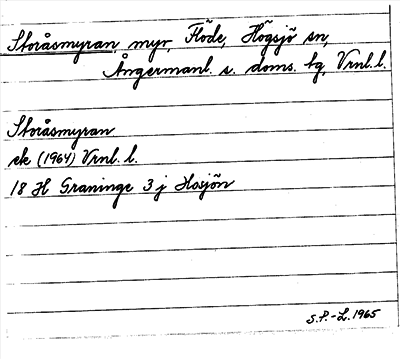 Storåsmyran, myr, Flöde, Högsjö sn,
Ångermanl. s. doms. tg, Vrnl. l.
Storåsmyran
ek (1964) Vrnl. l.
18 H Graninge 3 j Hosjön
S.P.-L. 1965